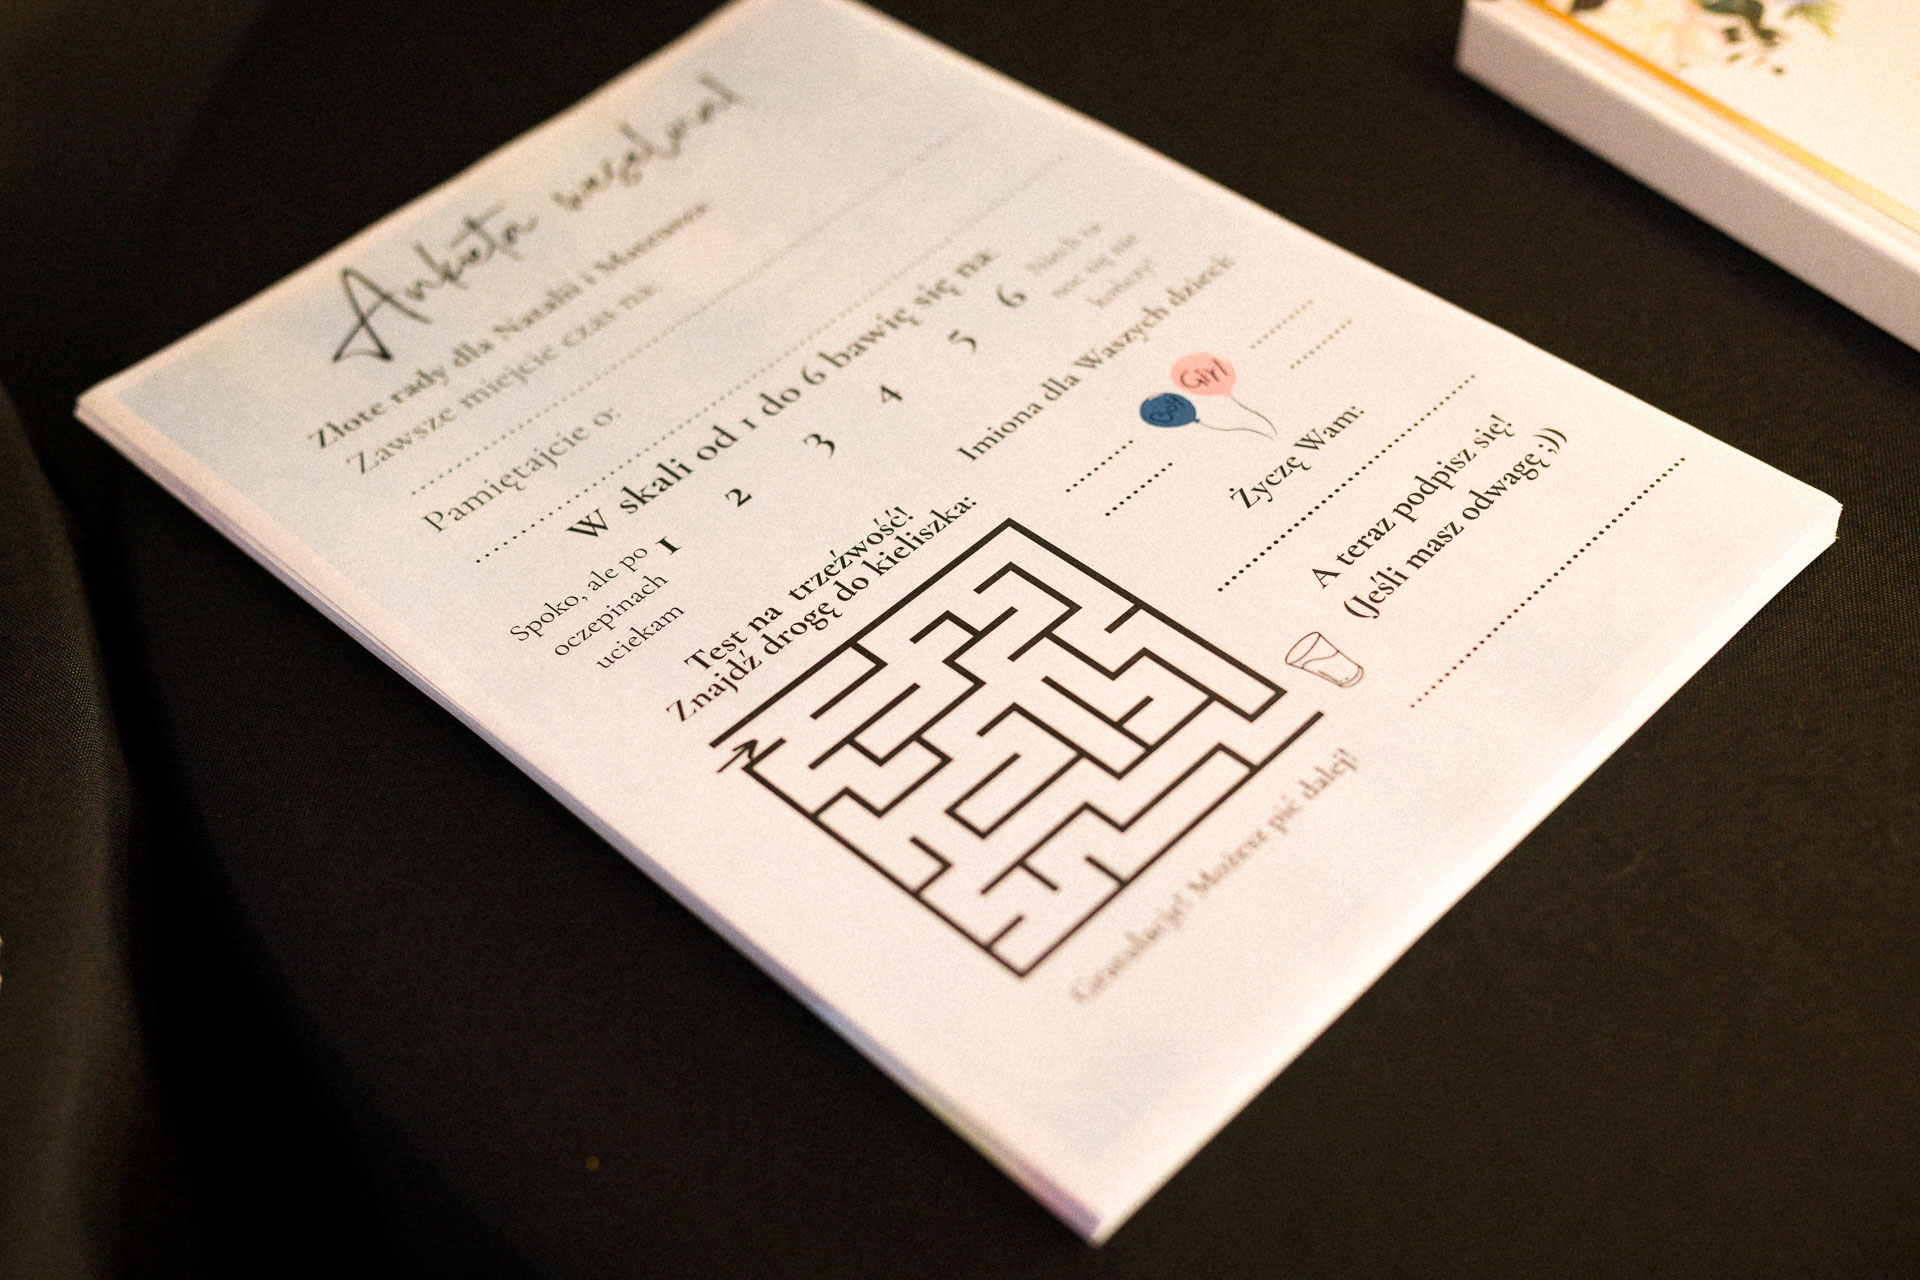 Ankieta weselna!
Złote rady dla Natalii i Mateusza
Zawsze miejcie czas na:
Pamiętajcie o:
W skali od 1 do 6 bawię się na:
1 2 3 4 5 6
Spoko, ale po
oczepinach
uciekam
Niech ta
noc się nie
kończy!
Test na trzeźwość!
Znajdź drogę do kieliszka:
Gratulacje! Możesz pić dalej!
Imiona dla Waszych dzieci:
Boy
Girl
Życzę Wam:
A teraz podpisz się!
(Jeśli masz odwagę ;))